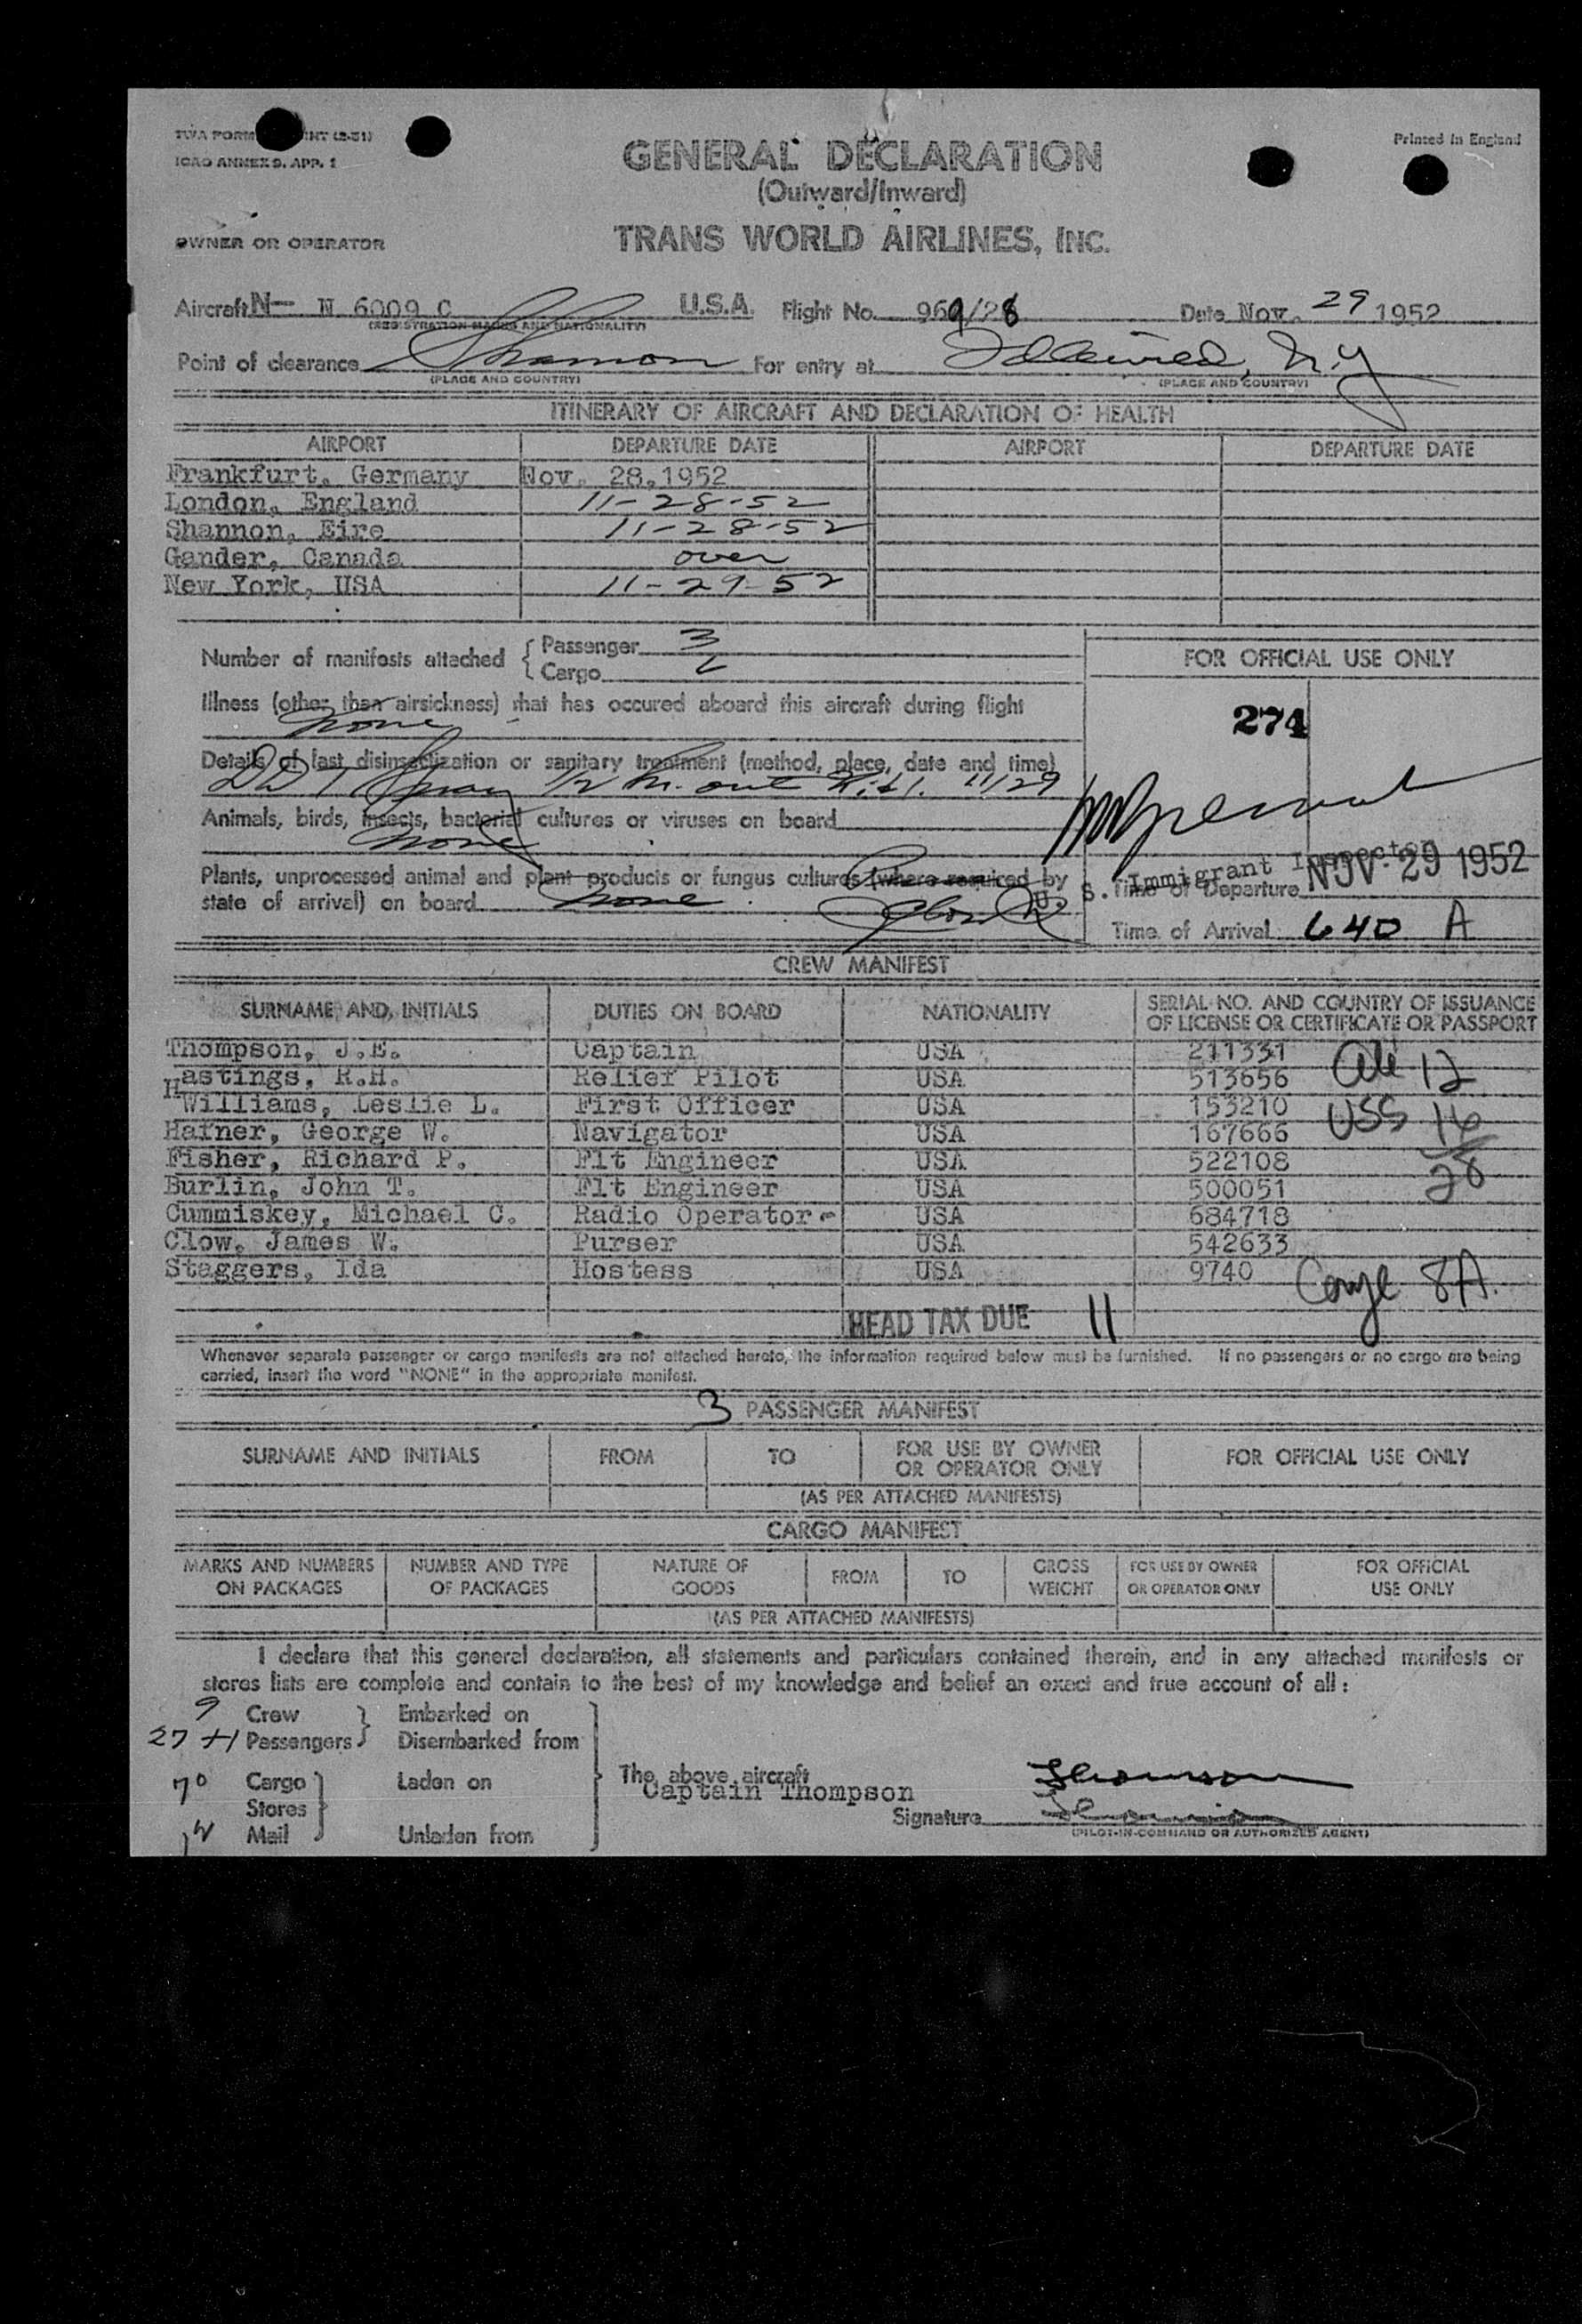 TWA FORM INT (2-51) Printed in England
ICAO ANNEX 9. APP. 1
GENERAL DECLARATION
(Outward/Inward)
OWNER OR OPERATOR TRANS WORLD AIRLINES, INC.
Aircraft N— N 6009 C U.S.A. Flight No. 969/28 Date Nov. 29 1952
(REGISTRATION MARKS AND NATIONALITY)
Point of clearance Shannon For entry at Idlewild, N.Y
(PLACE AND COUNTRY) (PLACE AND COUNTRY)
ITINERARY OF AIRCRAFT AND DECLARATION OF HEALTH
AIRPORT DEPARTURE DATE AIRPORT DEPARTURE DATE
Frankfurt, Germany Nov. 28,1952
London, England 11-28-52
Shannon, Eire 11-28-52
Gander, Canada over
New York, USA 11-29-52
Number of manifests attached { Passenger 3
Cargo
FOR OFFICIAL USE ONLY
Illness (other than airsickness) that has occured aboard this aircraft during flight
none
274
Details of last disinsectization or sanitary treatment (method, place, date and time)
DDT Spray 1/2 hr. out 11/29
Animals, birds, insects, bacterial cultures or viruses on board
none
Plants, unprocessed animal and plant products or fungus cultures (where required by
state of arrival) on board none
U. S. Immigrant Inspector
Time of Departure NOV 29 1952
Time of Arrival 640 A
CREW MANIFEST
SURNAME AND INITIALS DUTIES ON BOARD NATIONALITY SERIAL NO. AND COUNTRY OF ISSUANCE
OF LICENSE OR CERTIFICATE OR PASSPORT
Thompson, J.E. Captain USA 211331
Hastings, R.H. Relief Pilot USA 513656 Ali 12
Williams, Leslie L. First Officer USA 153210 USS 16
Hafner, George W. Navigator USA 167666
Fisher, Richard P. Flt Engineer USA 522108 28
Burlin, John T. Flt Engineer USA 500051
Cummiskey, Michael C. Radio Operator USA 684718
Clow, James W. Purser USA 542633
Staggers, Ida Hostess USA 9740 8A.
HEAD TAX DUE 11
Whenever separate passenger or cargo manifests are not attached hereto, the information required below must be furnished. If no passengers or no cargo are being
carried, insert the word "NONE" in the appropriate manifest.
3 PASSENGER MANIFEST
SURNAME AND INITIALS FROM TO FOR USE BY OWNER
OR OPERATOR ONLY FOR OFFICIAL USE ONLY
(AS PER ATTACHED MANIFESTS)
CARGO MANIFEST
MARKS AND NUMBERS
ON PACKAGES NUMBER AND TYPE
OF PACKAGES NATURE OF
GOODS FROM TO GROSS
WEIGHT FOR USE BY OWNER
OR OPERATOR ONLY FOR OFFICIAL
USE ONLY
(AS PER ATTACHED MANIFESTS)
I declare that this general declaration, all statements and particulars contained therein, and in any attached manifests or
stores lists are complete and contain to the best of my knowledge and belief an exact and true account of all :
9 Crew } Embarked on
27 +1 Passengers } Disembarked from
Cargo } Laden on
Stores
Mail } Unladen from
The above aircraft
Captain Thompson
Signature
(PILOT-IN-COMMAND OR AUTHORIZED AGENT)